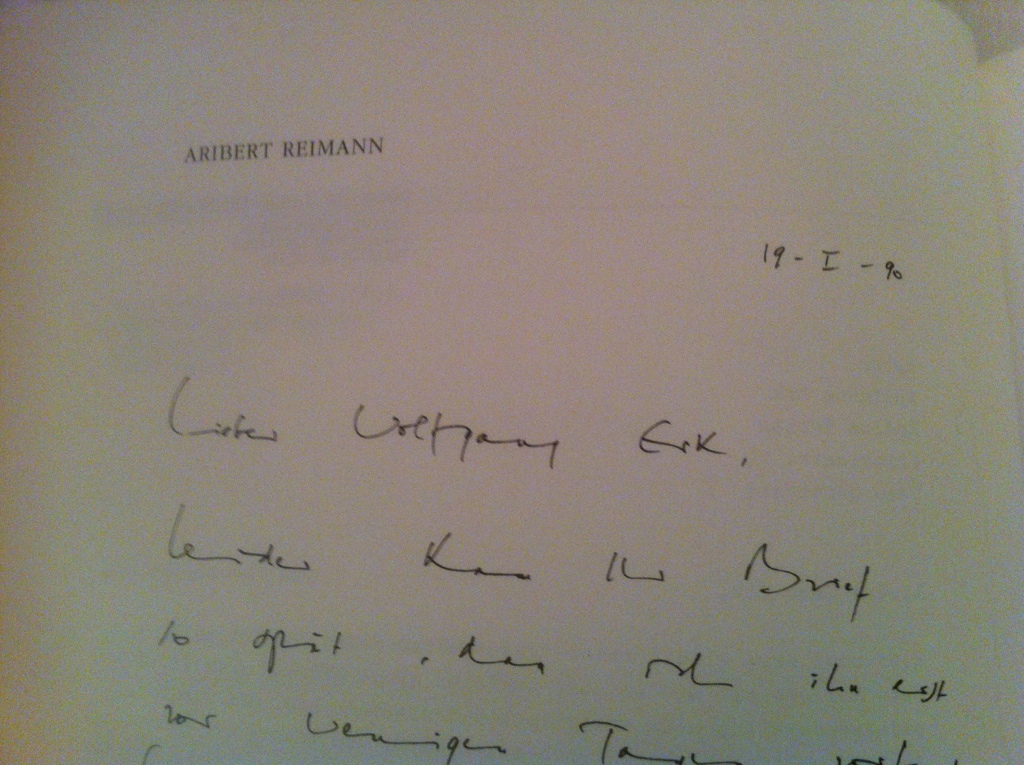 ARIBERT REIMANN
19-I-90
Lieber Wolfgang Erk,
leider kam Ihr Brief
so spät, dass ich ihn erst
vor wenigen Tagen